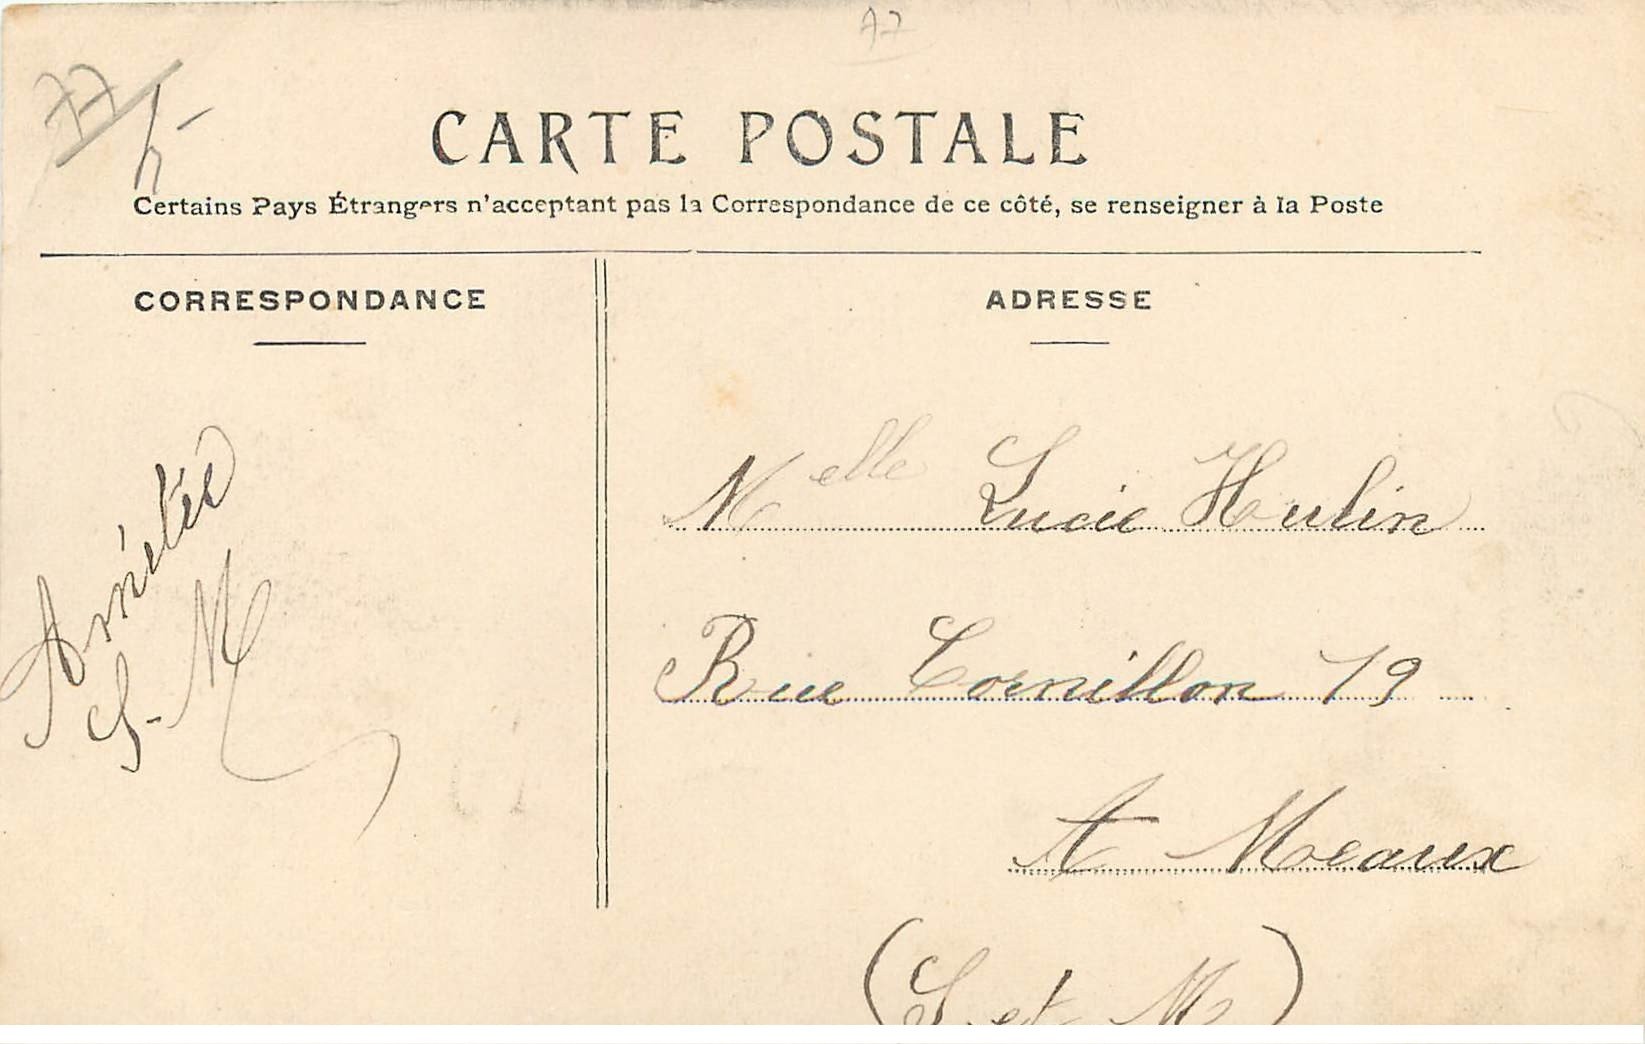 77
77
5-
CARTE POSTALE
Certains Pays Étrangers n'acceptant pas la Correspondance de ce côté, se renseigner à la Poste
CORRESPONDANCE
Amitiés
S-M
ADRESSE
Melle Lucie Hulin
Rue Cornillon 19
A Meaux
(S. et M)